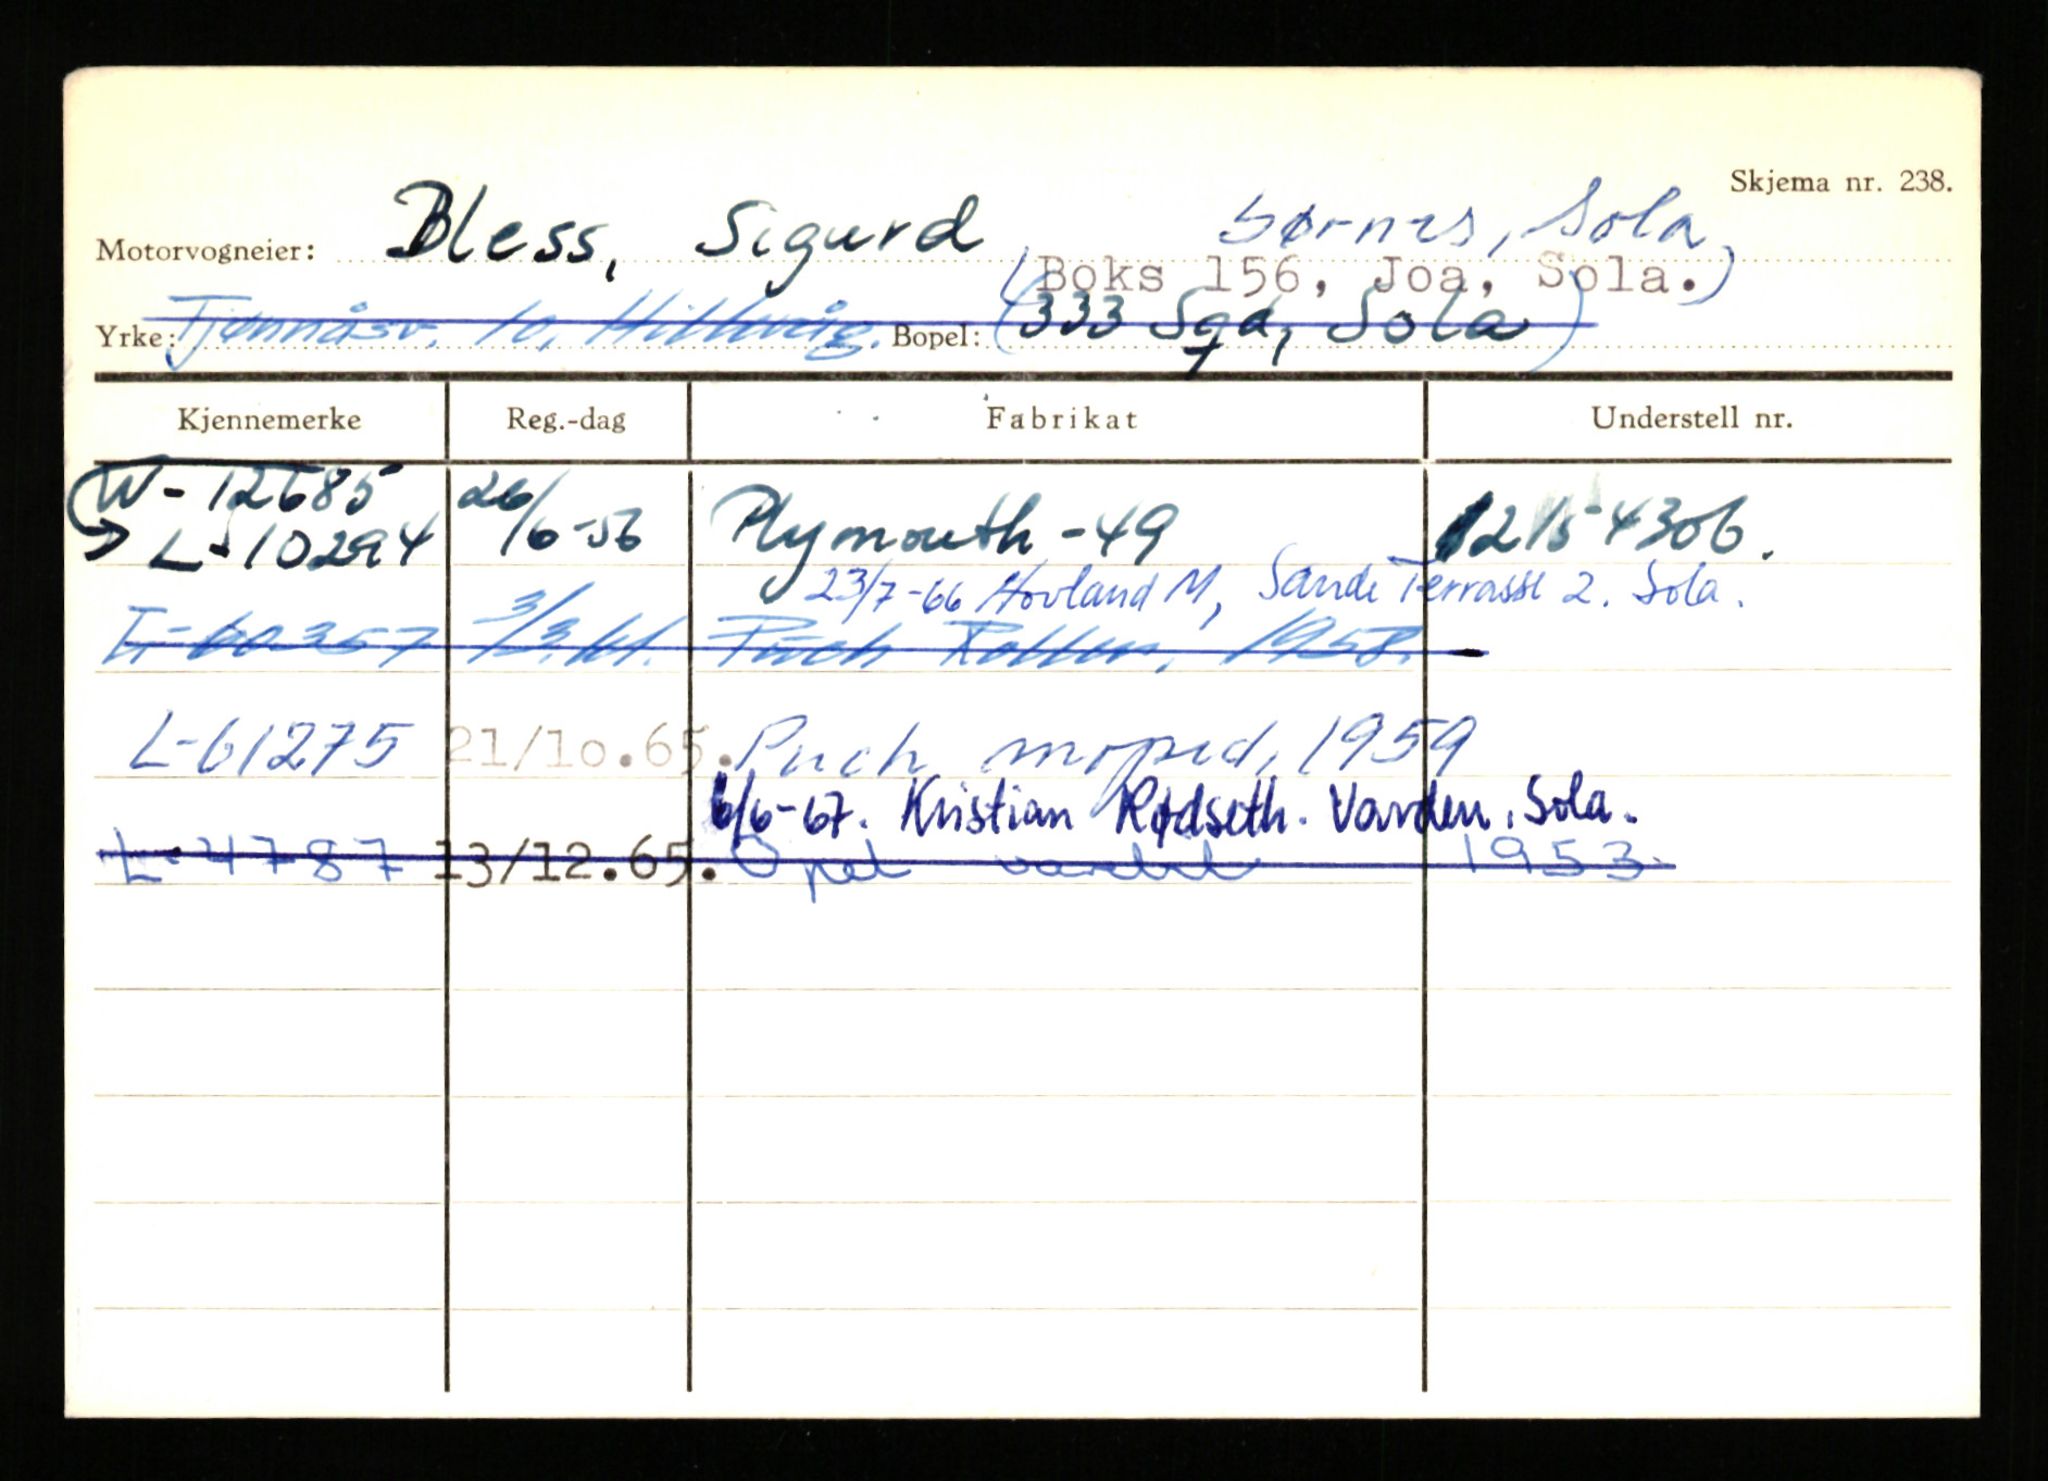 Skjema nr. 238.
Motorvogneier: Bless, Sigurd Sørnes, Sola
(Boks 156, Joa, Sola.)
Yrke: Tjønnåsv. 10, Hillevåg. Bopel: (333 Sqd, Sola)
Kjennemerke Reg.-dag Fabrikat Understell nr.
W-12685 26/6-56 Plymouth -49 12154306.
L-10294
23/7-66 Hovland M, Sande Terrasse 2. Sola.
L-60357 3/3.61. Puch Roller, 1958.
L-61275 21/10.65. Puch moped, 1959
6/6-67. Kristian Rødseth. Varden. Sola.
L-4787 13/12.65. Opel varebil 1953